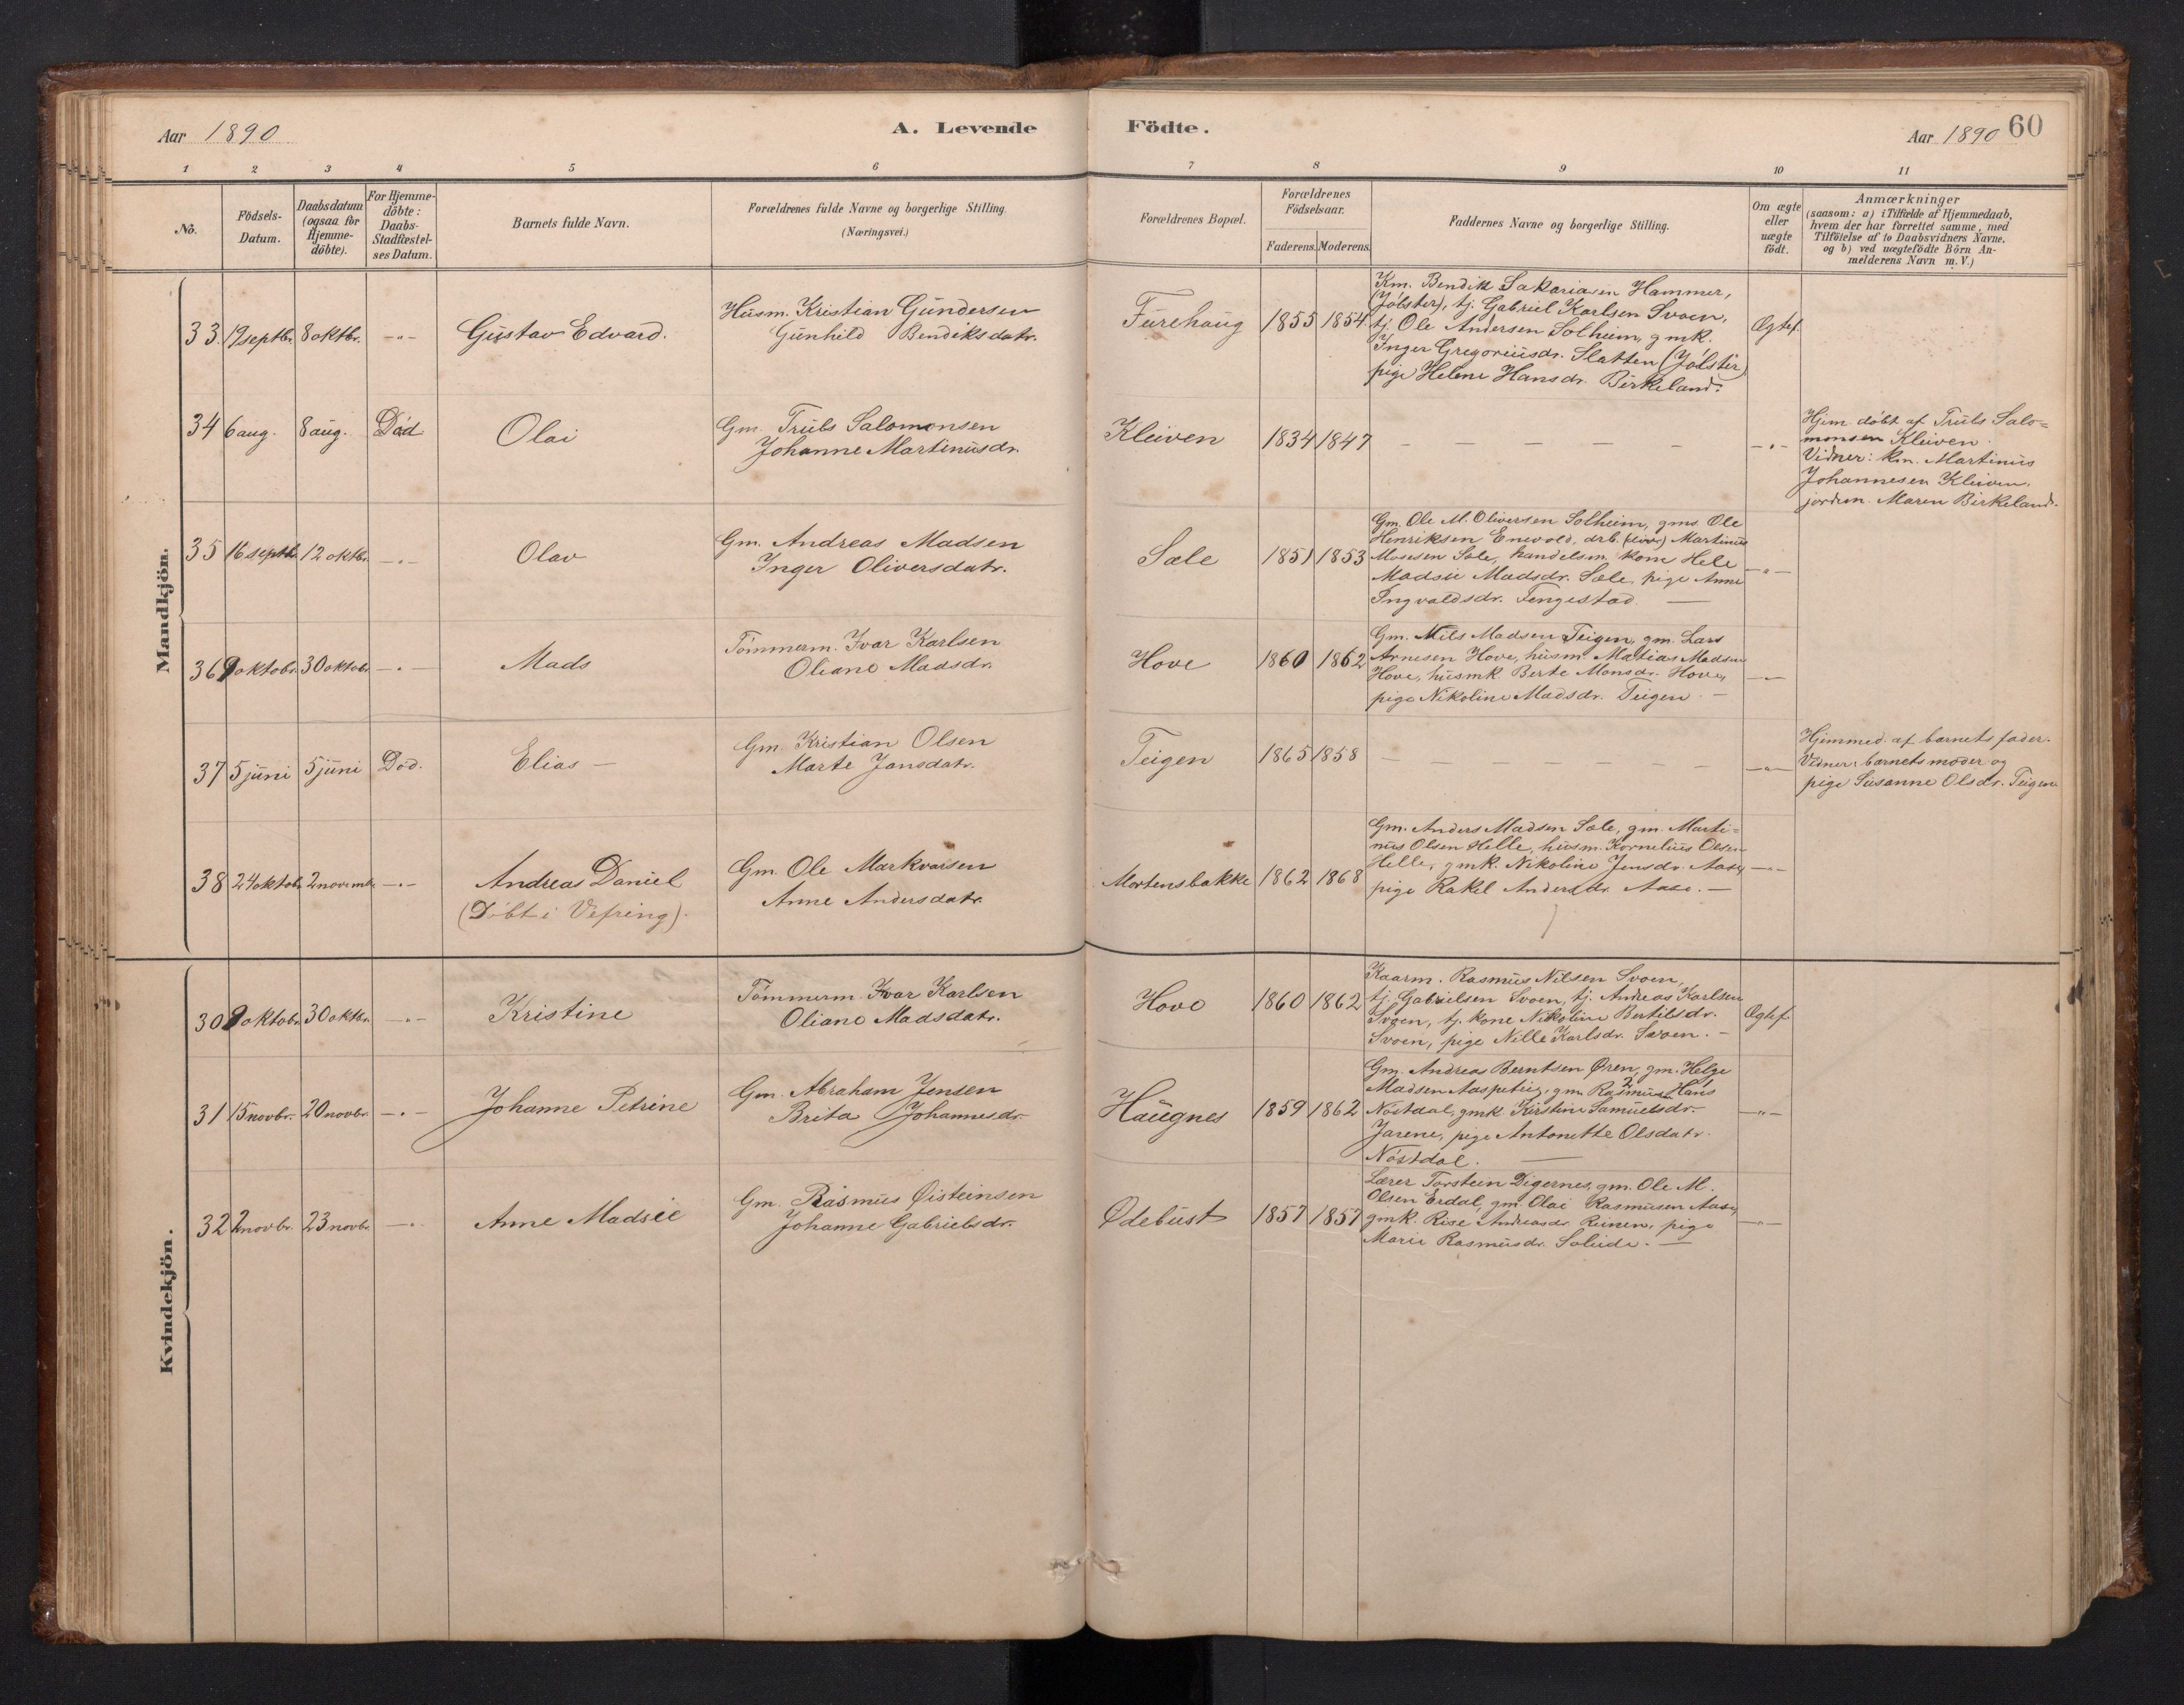 Aar 1890
A. Levende Födte.
Aar 1890 60
1 2 3 4 5 6 7 8 9 10 11
No.
Födsels-
Datum.
Daabsdatum
(ogsaa for
Hjemme-
döbte).
For Hjemme-
döbte:
Daabs-
Stadfæstel-
ses Datum.
Barnets fulde Navn.
Forældrenes fulde Navne og borgerlige Stilling.
(Næringsvei.)
Forældrenes Bopæl.
Forældrenes
Födselsaar.
Faderens. Moderens.
Faddernes Navne og borgerlige Stilling.
Om ægte
eller
uægte
födt.
Anmærkninger
(saasom: a) i Tilfælde af Hjemmedaab,
hvem der har forrettet samme, med
Tilföielse af to Daabsvidners Navne,
og b) ved uægtefödte Börn An-
melderens Navn m. V.)
Mandkjön.
33. 19 septbr. 8 oktbr. -"-
Gustav Edvard.
Husm. Kristian Gundersen
Gunhild Bendiksdatr.
Furehaug 1855 1854
Km. Bendik Sakariasen Hammer,
(Jölster), tj. Gabriel Karlsen Svoen,
tj. Ole Andersen Solheim, gmk.
Inger Gregoriusdr. Slatten (Jölster)
pige Helene Hansdr. Birkeland.
Ægtef.
34 6 aug. 8 aug. Död
Olai
Gm. Truls Salomonsen
Johanne Martinusdr.
Kleiven 1834 1847 — — — — — -"-
Hjem. döbt af Truls Salo=
monsen Kleiven.
Vidner: km. Martinus
Johannesen Kleiven,
jordm. Maren Birkeland.
35 16 septbr. 12 oktbr. -"-
Olav
Gm. Andreas Madsen
Inger Oliversdatr.
Sæle 1851 1853
Gm. Ole M. Oliversen Solheim, gms. Ole
Henriksen Enevold, drb. Martinus
Mosesen Sæle, handelsm. kone Hele
Madsie Madsdr. Sæle, pige Anne
Ingvaldsdr. Fengestad. —
-"-
36 9 oktobr. 30 oktobr. -"-
Mads
Tömmerm. Ivar Karlsen
Oliane Madsdr.
Hove 1860 1862
Gm. Nils Madsen Teigen, gm. Lars
Arnesen Hove, husm. Matias Madsen
Hove, husmk. Berte Monsdr. Hove,
pige Nikoline Madsdr. Teigen. —
-"-
37 5 juni 5 juni Död.
Elias —
Gm. Kristian Olsen
Marte Jansdatr.
Teigen 1865 1858 — — — — — — -"-
Hjemmed. af barnets fader.
Vidner: barnets moder og
pige Susanne Olsdr. Teigen
38 24 oktobr. 2 novembr. -"-
Andreas Daniel
(Döbt i Vefring).
Gm. Ole Markvarsen
Anne Andersdatr.
Mortensbakke 1862 1868
Gm. Anders Madsen Sæle, gm. Marti=
nus Olsen Helle, husm. Kornelius Olsen
Helle, gmk. Nikoline Jensdr. Aase,
pige Rakel Andersdr. Aase. —
-"-
Kvindekjön.
30 9 oktobr. 30 oktbr. -"-
Kristine
Tömmerm. Ivar Karlsen
Oliane Madsdatr.
Hove 1860 1862
Kaarm. Rasmus Nilsen Svoen,
tj. Gabrielsen Svoen, tj. Andreas Karlsen
Svoen, tj. kone Nikoline Bertilsdr.
Svoen, pige Nille Karlsdr. Svoen. —
Ægtef.
31 15 novbr. 20 novbr. -"-
Johanne Petrine
Gm. Abraham Jensen
Brita Johannesdr.
Haugnes 1859 1862
Gm. Andreas Berntsen Øren, gm. Helge
Madsen gm. Rasmus Hans
Nöstdal, gmk. Kirstine Samuelsdr.
Jarene, pige Antonette Olsdatr.
Nöstdal. —
-"-
32 2 novbr. 23 novbr. -"-
Anne Madsie
Gm. Rasmus Øisteinsen
Johanne Gabrielsdr.
Ødebust 1857 1857
Lærer Torstein Digernes, gm. Ole M.
Olsen Erdal, gm. Olai Rasmusen Aase,
gmk. Rise Andreasdr. Reinen, pige
Marie Rasmusdr. Soleide. —
-"-